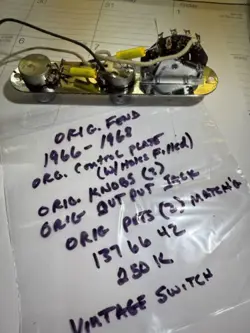 ORIG. FEND
1966-1968
ORG. CONTROL PLATE
(W/ HOLES FILLED)
ORIG. KNOBS (2)
ORIG OUTPUT JACK
ORIG POTS (2) MATCH'G
137 66 42
250 K.
VINTAGE SWITCH